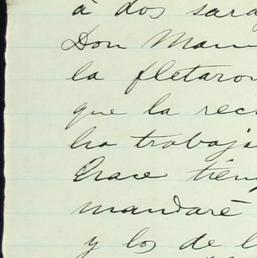 à dos sara
Don Man
la fletaron
que la rec
ha trabaja
Grace tien
mandaré
y los de l